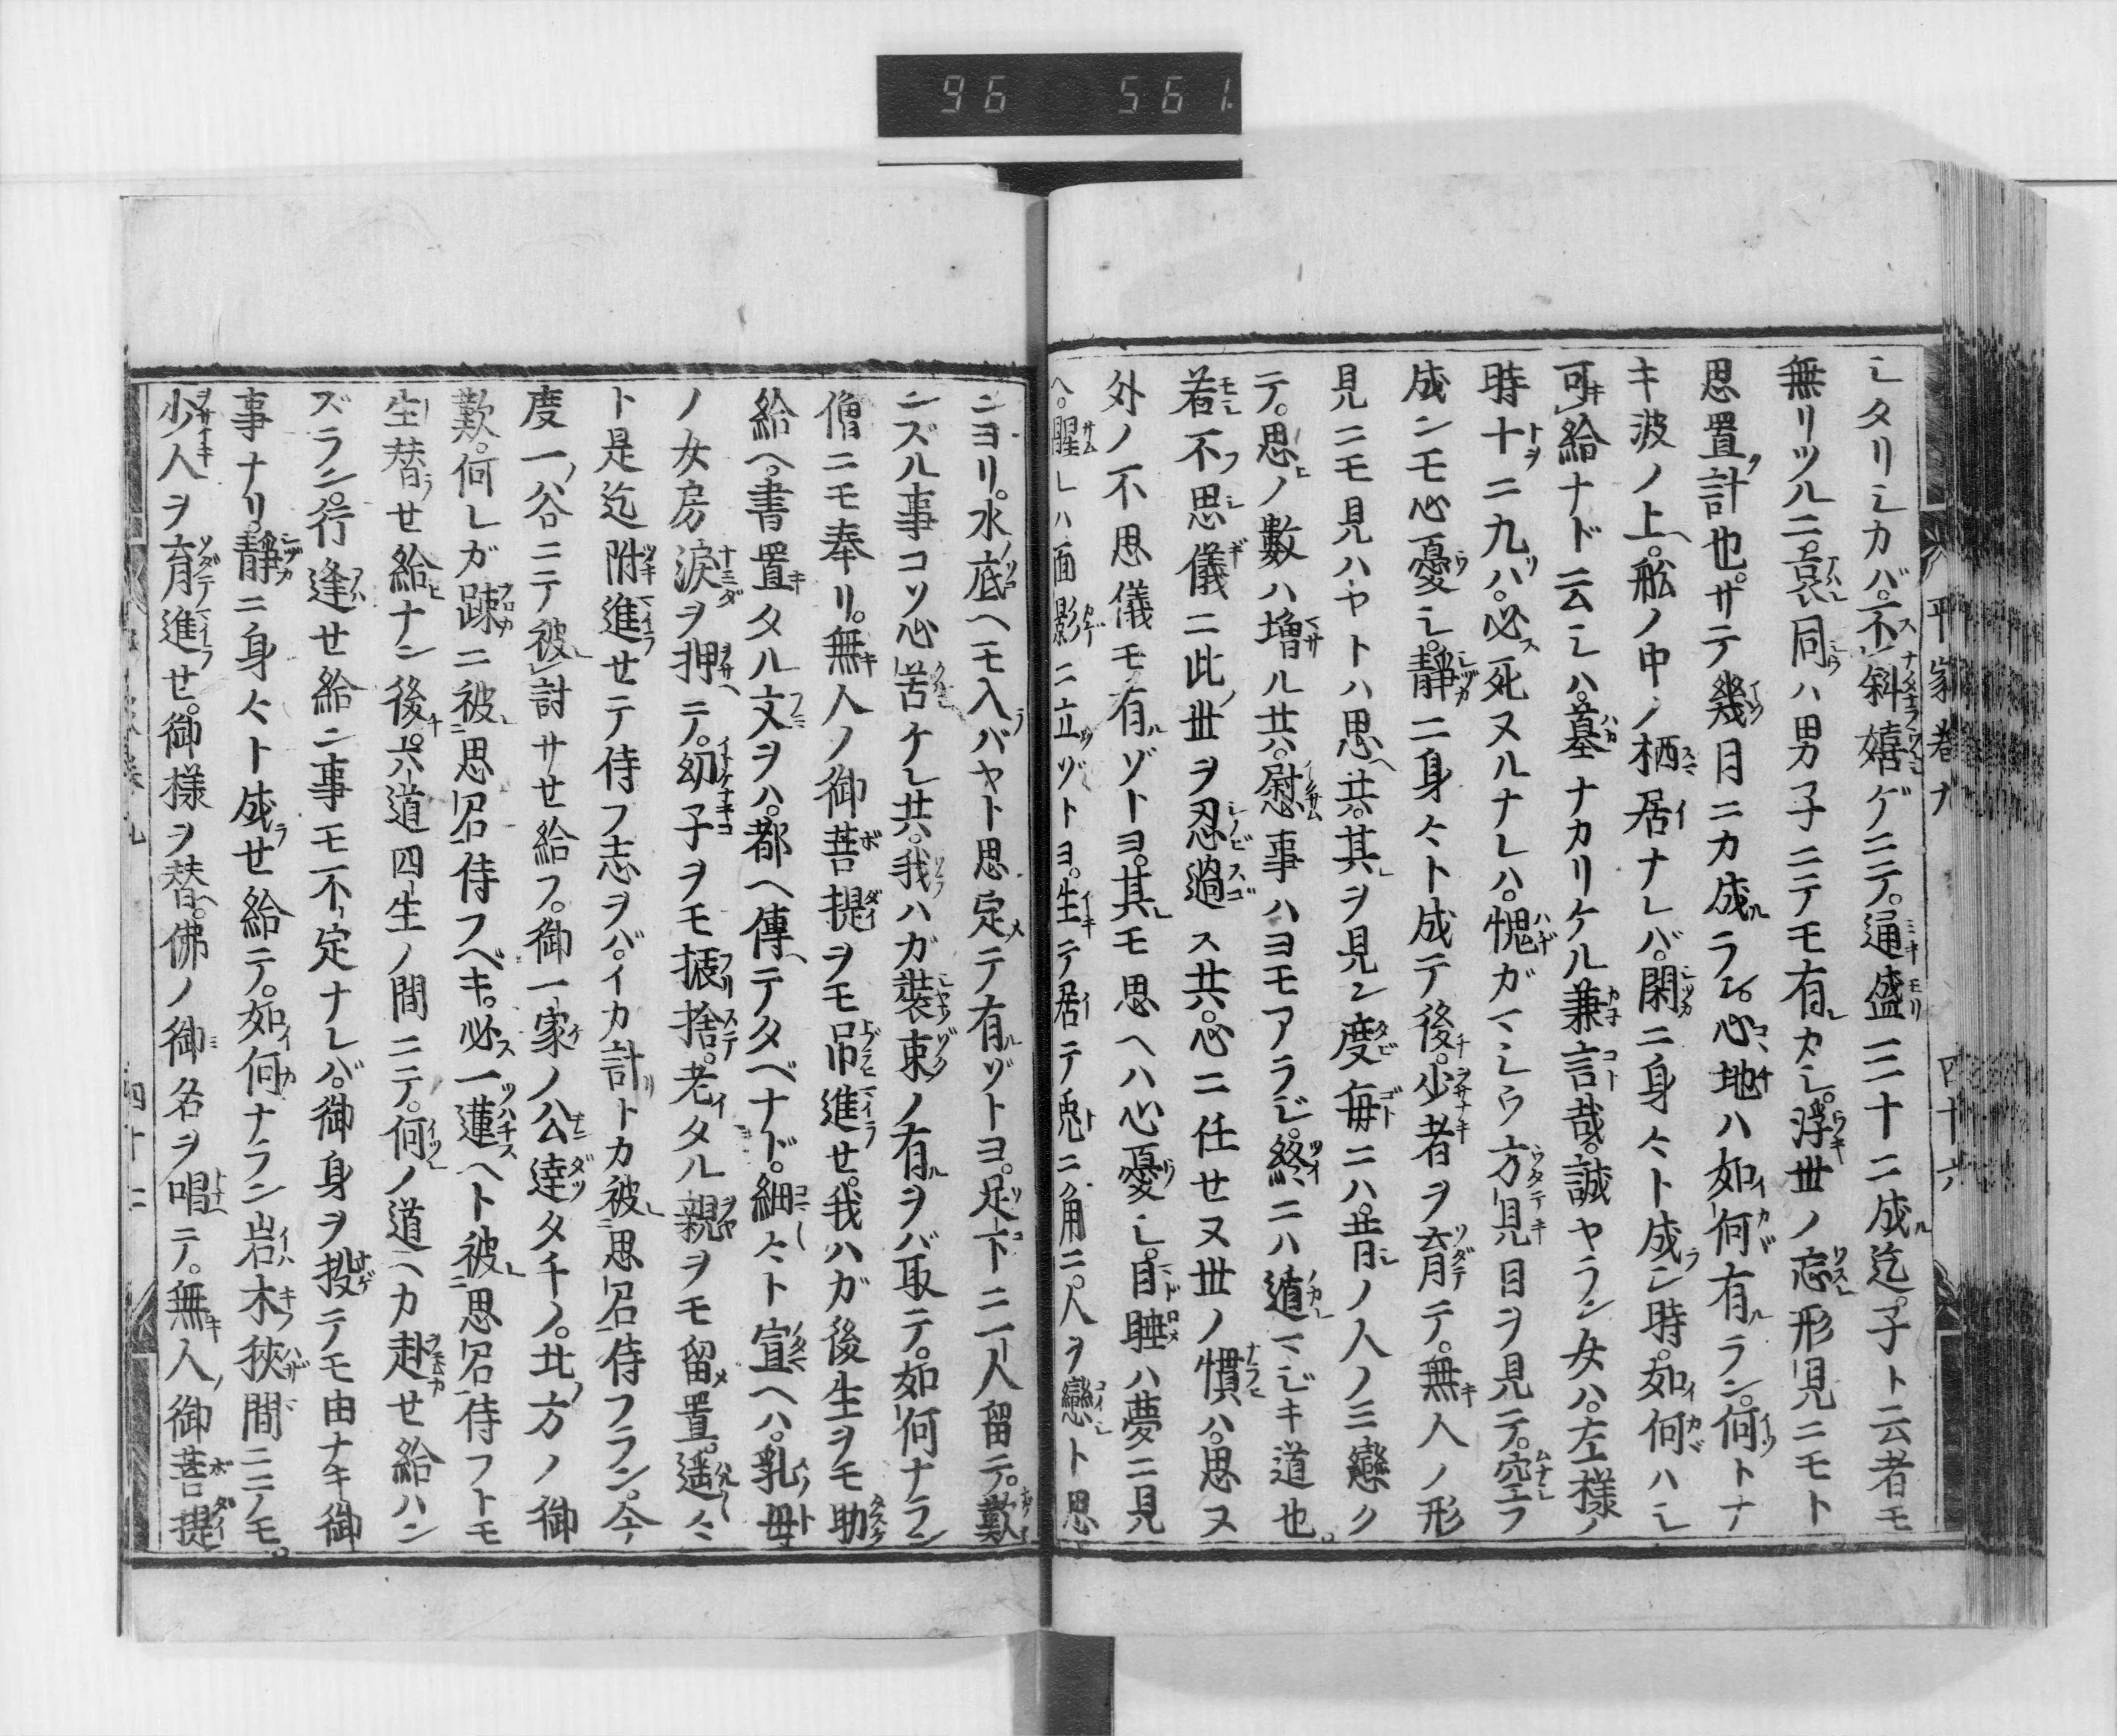 96 561.
平家巻九
四十六
シタリシカバ。不斜嬉ゲニテ。通盛三十ニ成迄。子ト云者モ
無リツルニ。哀レ同ハ男子ニテモ有カシ。浮世ノ忘形見ニモト
思置計也。サテ幾月ニカ成ラン。心地ハ如何有ラン。何トナ
キ波ノ上。舩ノ中ノ栖居ナレバ。閑ニ身々ト成ン時。如何ハシ
可給ナド云シハ。墓ナカリケル兼言哉。誠ヤラン女ハ。左様ノ
時十ニ九ハ。必死ヌルナレハ。愧ガマシウ方見目ヲ見テ。空フ
成ンモ心憂シ。静ニ身々ト成テ後。少者ヲ育テ。無人ノ形
見ニモ見ハヤトハ思ヘ共。其ヲ見ン度毎ニハ。昔ノ人ノミ戀ク
テ。思ノ數ハ増ル共。慰事ハヨモアラジ。終ニハ遁マジキ道也。
若不思儀ニ此世ヲ忍過ス共。心ニ任セヌ世ノ慣ハ。思ヌ
外ノ不思儀モ有ゾトヨ。其モ思ヘハ心憂シ。目睡ハ夢ニ見
ヘ。醒レハ面影ニ立ゾトヨ。生テ居テ兎ニ角ニ。人ヲ戀ト思
ニヨリ。水底ヘモ入バヤト思定テ有ゾトヨ。足下ニ一人留テ。歎
ンズル事コソ心苦ケレ共。我ハガ装束ノ有ヲバ取テ。如何ナラン
僧ニモ奉リ。無人ノ御菩提ヲモ吊進セ。我ハガ後生ヲモ助
給ヘ。書置タル文ヲハ。都ヘ傳テタベナド。細々ト宣ヘハ。乳母
ノ女房涙ヲ押テ。幼子ヲモ振捨。老タル親ヲモ留置。遥々
ト是迄附進セテ侍フ志ヲバ。イカ計トカ被思召侍フラン。今
度一谷ニテ被討サセ給フ。御一家ノ公達タチノ。北方ノ御
歎。何レガ踈ニ被思召侍フベキ。必一蓮ヘト被思召侍フトモ
生替せ給ナン後。六道四生ノ間ニテ。何ノ道ヘカ赴セ給ハン
ズラン。行逢せ給ン事モ不定ナレバ。御身ヲ投テモ由ナキ御
事ナリ。静ニ身々ト成せ給テ。如何ナラン岩木狹間ニテモ。
少人ヲ育進せ。御様ヲ替。佛ノ御名ヲ唱テ。無人ノ御菩提
四十二